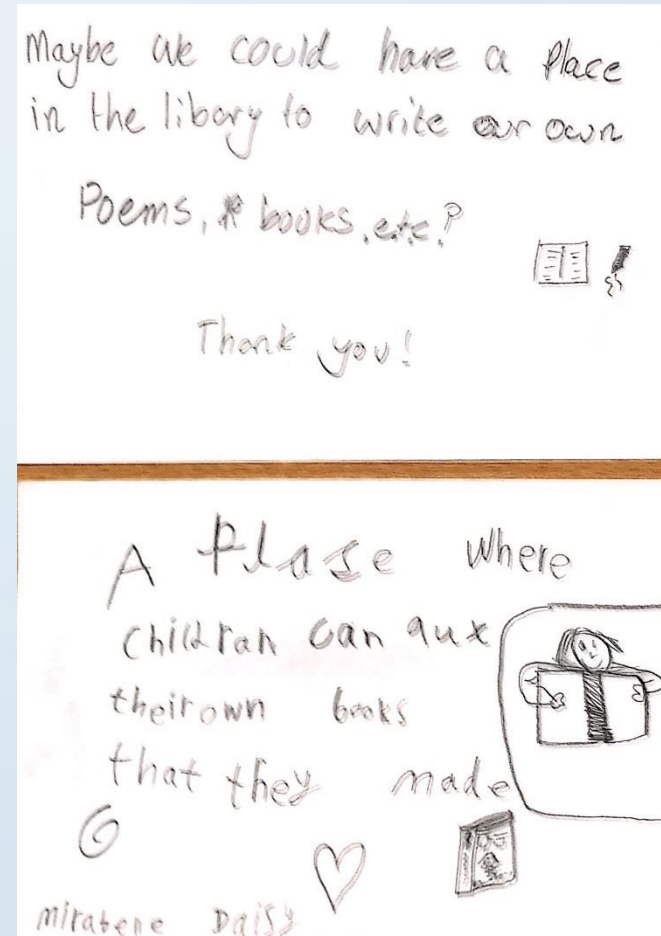 Maybe we could have a Place
in the libory to write our own
Poems, books, etc?
Thank you!
A Plase Where
childran can aux
their own books
that they made
Daisy